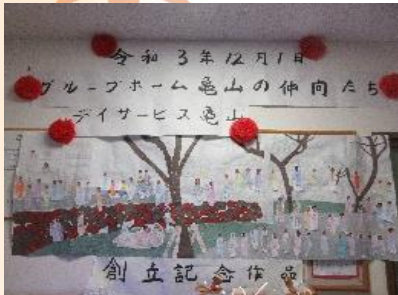 令和3年12月1日
グループホーム亀山の仲間たち
デイサービス亀山
創立記念作品